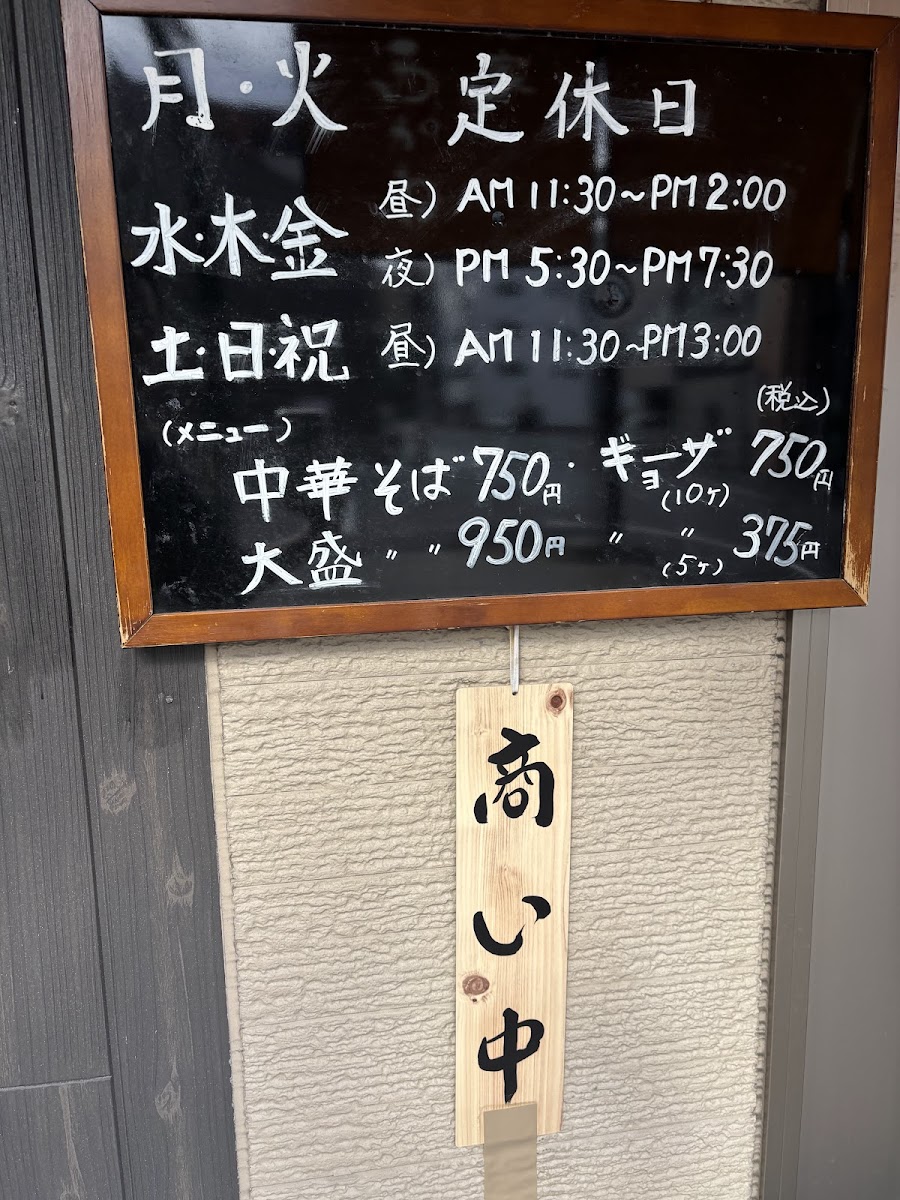 月・火 定休日
水・木・金 昼) AM 11:30~PM 2:00
夜) PM 5:30~PM 7:30
土・日・祝 昼) AM 11:30~PM 3:00
(税込)
(メニュー)
中華そば 750円・ギョーザ(10ヶ) 750円
大盛 〃 〃 950円 〃 〃 (5ヶ) 375円
商い中